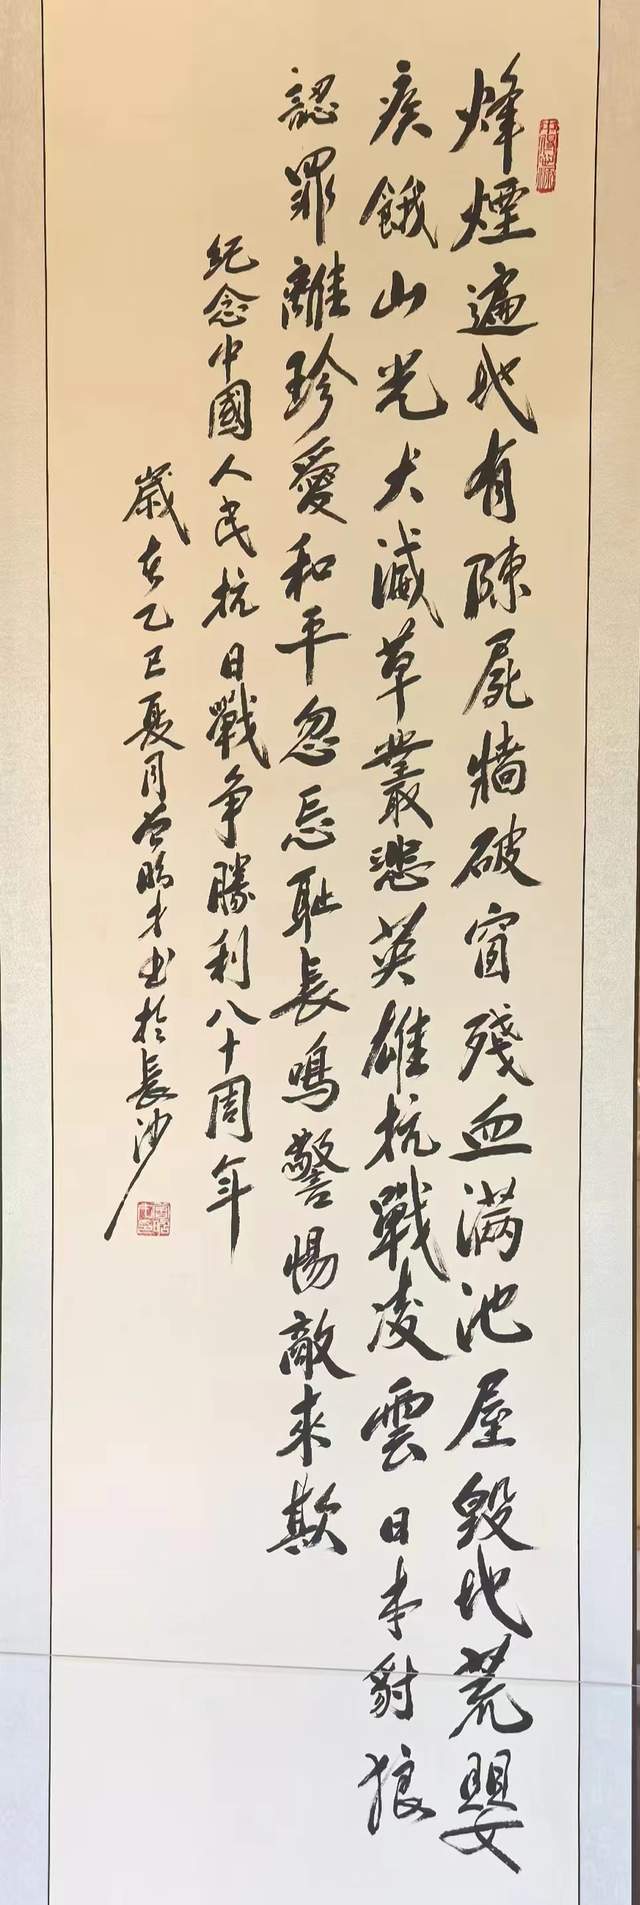 烽煙遍地有陳屍牆破窗殘血满池屋毀地荒嬰
疾餓山光犬滅草叢悲英雄抗戰凌雲日本豺狼
認罪離珍愛和平忽忘耻長鳴警惕敵來欺
紀念中國人民抗日戰争勝利八十周年
歲在乙巳夏月曾 才书於長沙